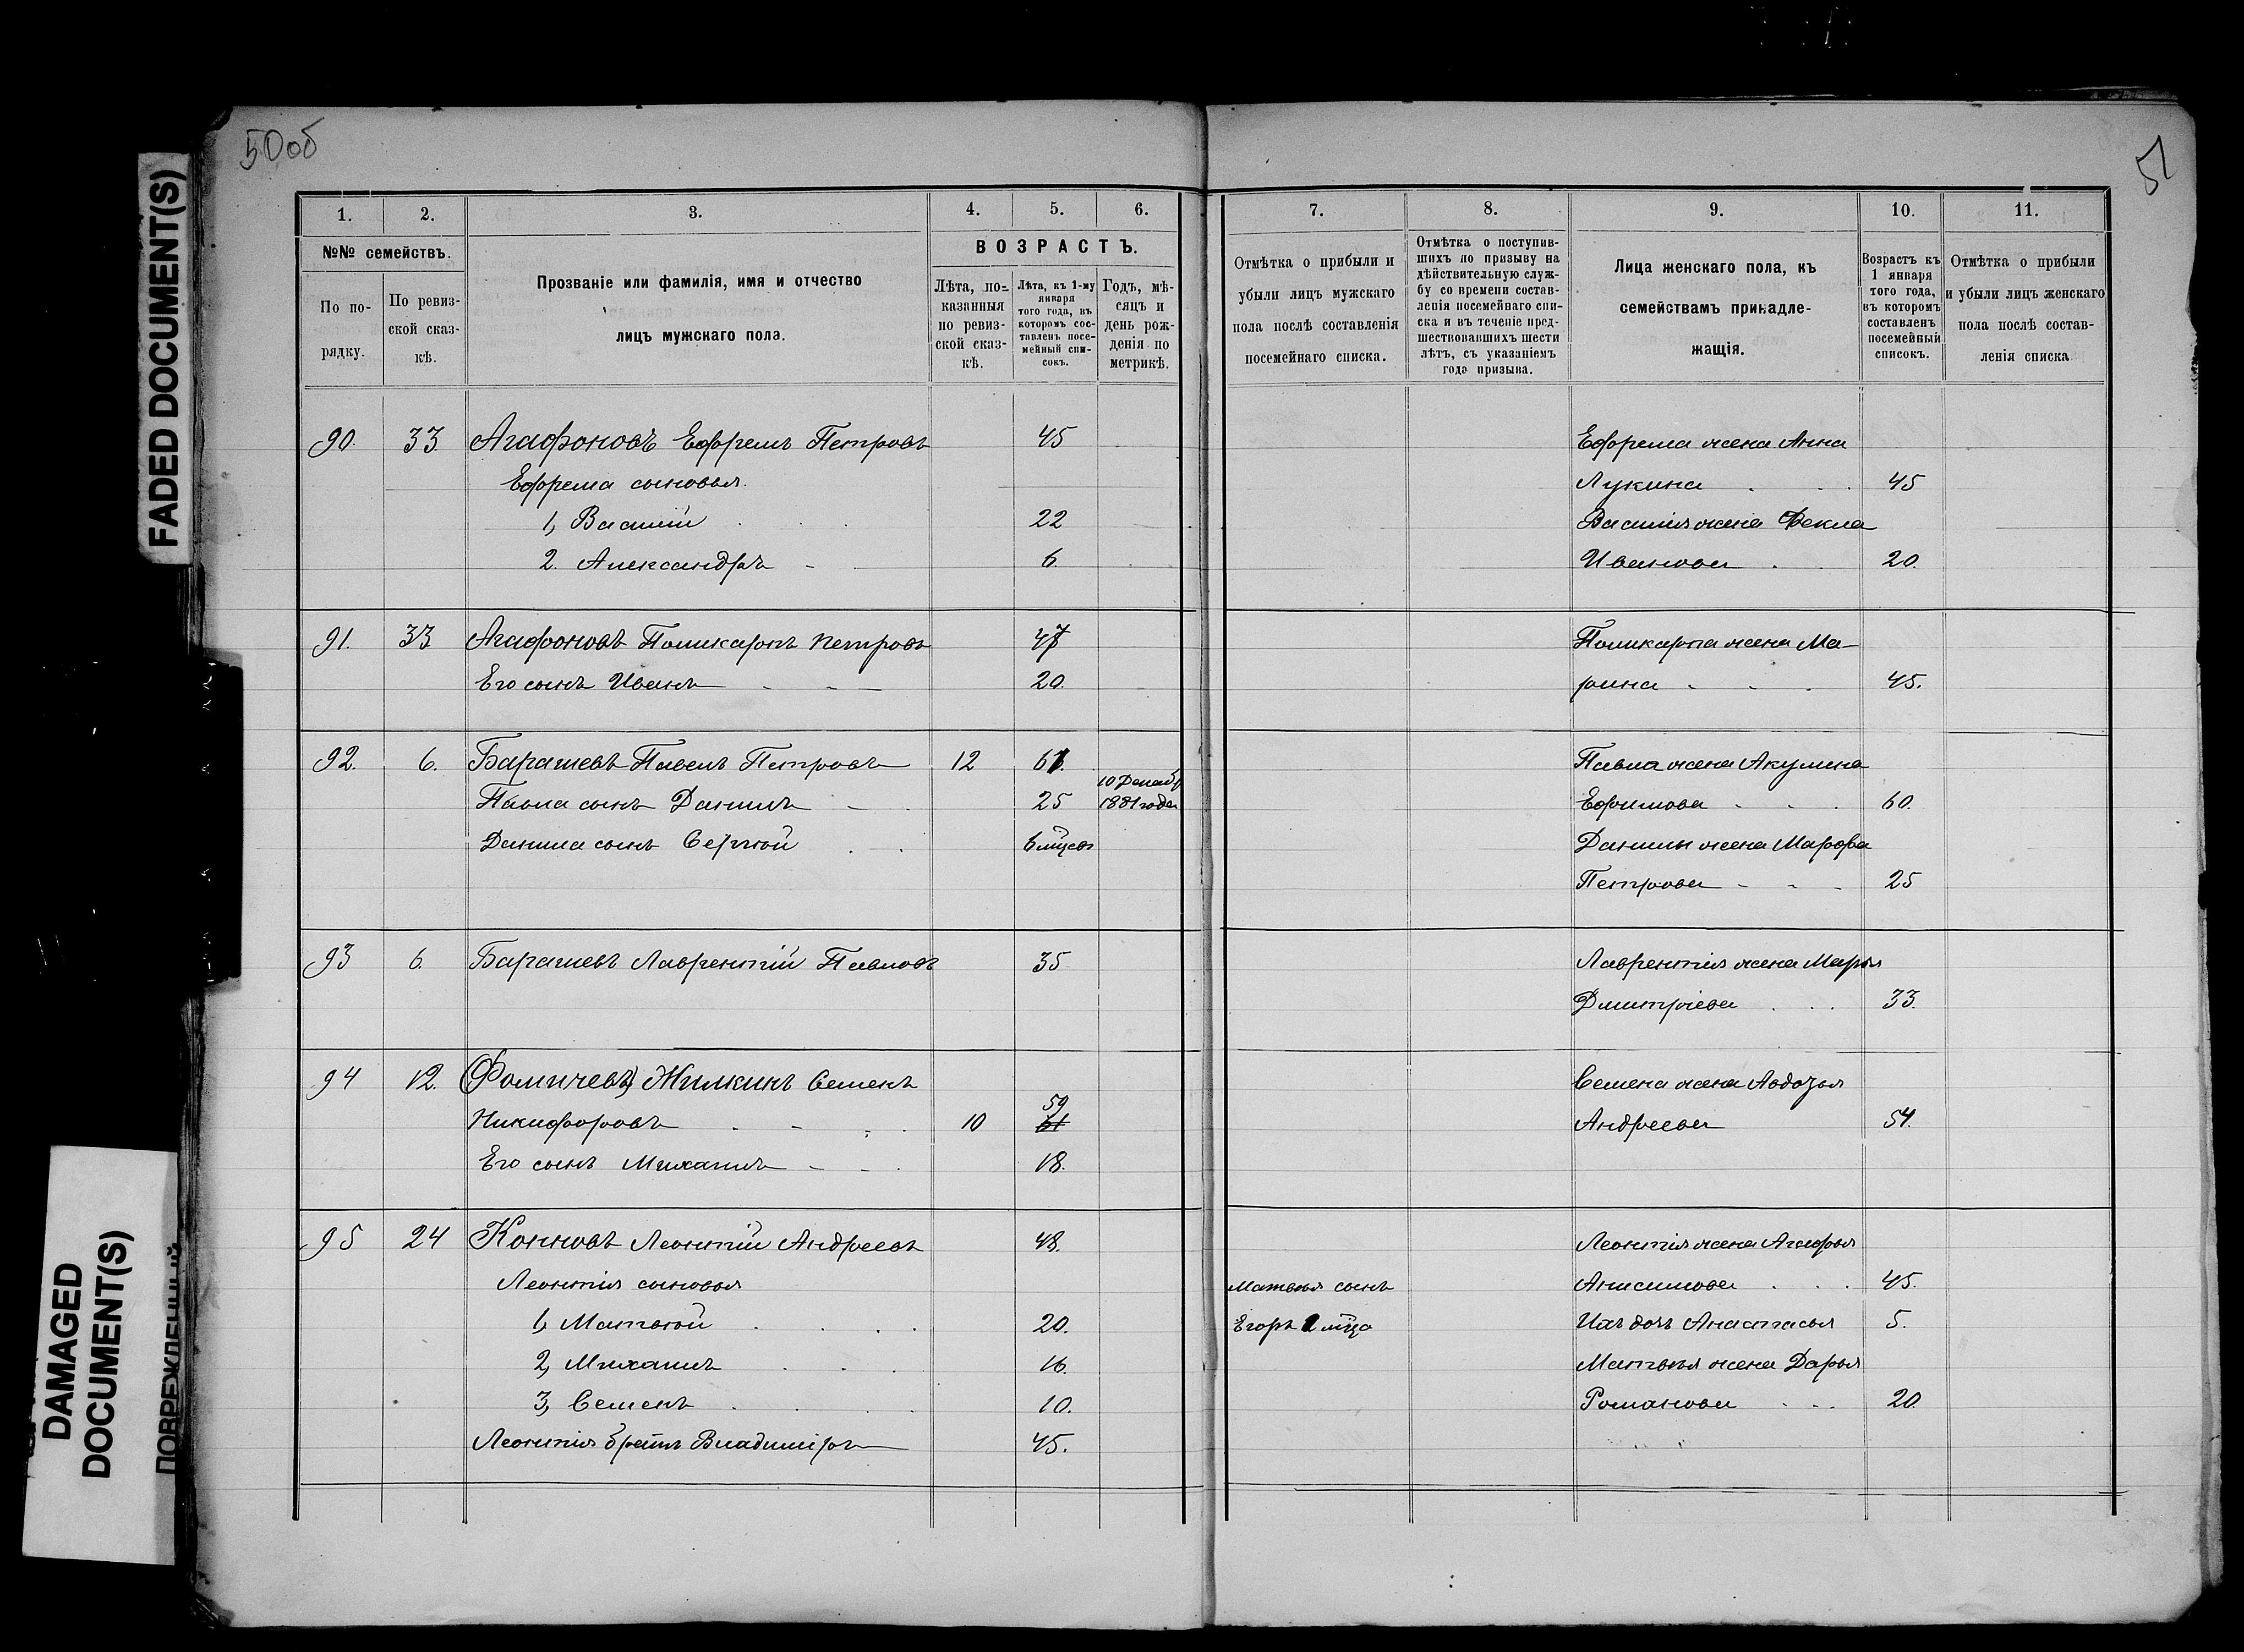 50об
51
FADED DOCUMENT(S)
DAMAGED
DOCUMENT(S)
ПОВРЕЖДЕННЫЙ
1. 2. 3. 4. 5. 6.
№№ семействъ.
По по-
рядку.
По ревиз-
ской сказ-
кѣ.
Прозваніе или фамилія, имя и отчество
лицъ мужскаго пола.
ВОЗРАСТЪ.
Лѣта, по-
казанныя
по ревиз-
ской сказ-
кѣ.
Лѣта, къ 1-му
января
того года, въ
которомъ сос-
тавленъ посе-
мейный спи-
сокъ.
Годъ, мѣ-
сяцъ и
день рож-
денія по
метрикѣ.
90. 33. Агафоновъ Ефремъ Петровъ 45
Ефрема сыновья.
1, Василій 22
2. Александръ 6.
91. 33 Агафоновъ Поликарпъ Петровъ 47
Его сынъ Иванъ 20.
92. 6. Барашевъ Павелъ Петровъ 12 61.
Павла сынъ Данилъ 25 10 Декабр
1881 года
Данила сынъ Сергѣй 6 мцевъ
93 6. Барашевъ Лаврентій Павловъ 35
94 12. (Фомичевъ) Жилкинъ Семенъ
Никифоровъ 10 59 61
Его сынъ Михаилъ 18.
95 24 Конновъ Леонтій Андреевъ 48.
Леонтія сыновья
1, Матвѣй 20.
2, Михаилъ 16.
3, Семенъ 10.
Леонтія братъ Владиміръ 45.
7. 8. 9. 10. 11.
Отмѣтка о прибыли и
убыли лицъ мужскаго
пола послѣ составленія
посемейнаго списка.
Отмѣтка о поступив-
шихъ по призыву на
дѣйствительную служ-
бу со времени состав-
ленія посемейнаго спи-
ска и въ теченіе пред-
шествовавшихъ шести
лѣтъ, съ указаніемъ
года призыва.
Лица женскаго пола, къ
семействамъ принадле-
жащія.
Возрастъ къ
1 января
того года,
въ которомъ
составленъ
посемейный
списокъ.
Отмѣтка о прибыли
и убыли лицъ женскаго
пола послѣ состав-
ленія списка
Ефрема жена Анна
Лукина 45
Василія жена Фекла
Иванова 20.
Поликарпа жена Ма-
рина 45.
Павла жена Акулина
Ефимова 60.
Данилы жена Марфа
Петрова 25
Лаврентія жена Марья
Дмитріева 33.
Семена жена Авдотья
Андреева 54.
Леонтія жена Агафья
Матвѣя сынъ Анисимова 45.
Егоръ 1 мца Ихъ дочь Анастасья 5.
Матвѣя жена Дарья
Романова 20